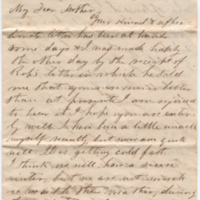 My Dear Mother,
Your kind & affec-
tionate letter has been at hand
some days & I was made happy
the other day by the receipt of
Rob's letter in which he told
me that you were much better
than at present I am rejoiced
to hear it & hope you are entire-
ly well. I have been a little unwell
myself recently but now am quite
well. It is getting cold fast.
I think we will have a severe
winter, but we are not uneasy
as with the this, during